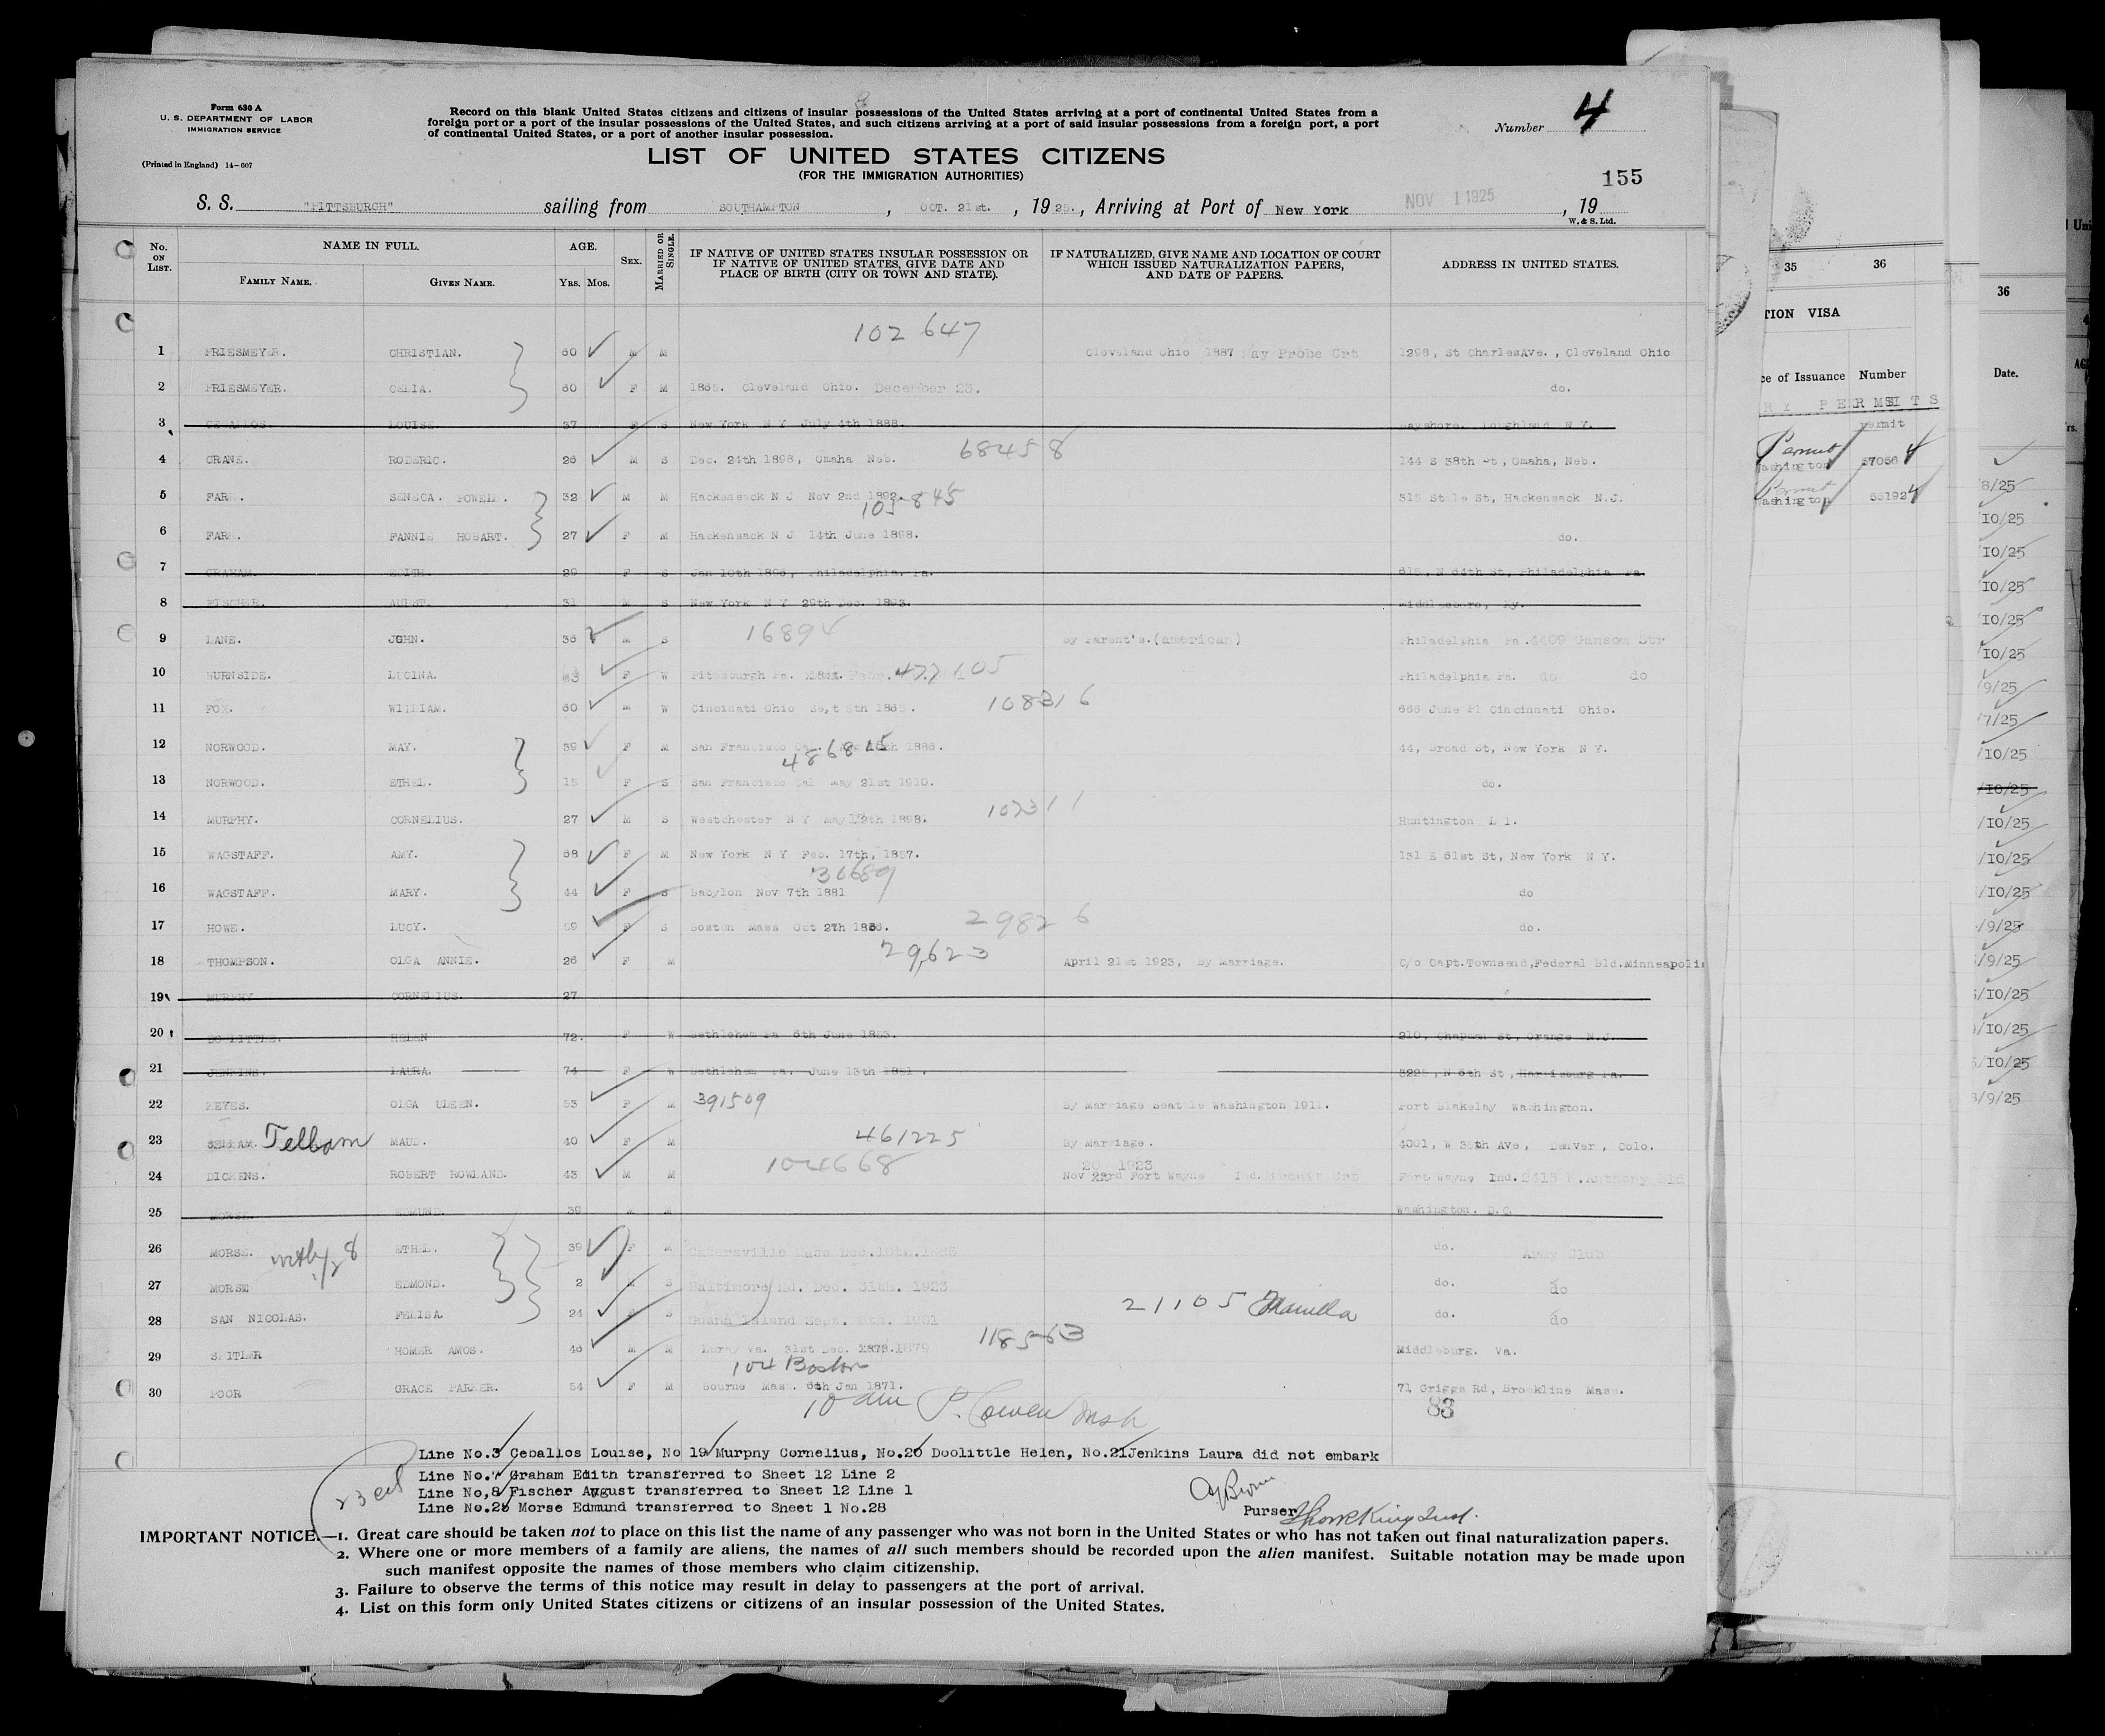 Form 630 A
U. S. DEPARTMENT OF LABOR
IMMIGRATION SERVICE
(Printed in England) 14-607
Record on this blank United States citizens and citizens of insular possessions of the United States arriving at a port of continental United States from a
foreign port or a port of the insular possessions of the United States, and such citizens arriving at a port of said insular possessions from a foreign port, a port
of continental United States, or a port of another insular possession.
Number 4
LIST OF UNITED STATES CITIZENS
(FOR THE IMMIGRATION AUTHORITIES)
155
S. S. "PITTSBURGH" sailing from SOUTHAMPTON, OCT. 21st., 1925., Arriving at Port of New York NOV 1 1925, 19
W. & S. Ltd.
No. ON LIST. NAME IN FULL. AGE. SEX. MARRIED OR SINGLE. IF NATIVE OF UNITED STATES INSULAR POSSESSION OR IF NATIVE OF UNITED STATES, GIVE DATE AND PLACE OF BIRTH (CITY OR TOWN AND STATE). IF NATURALIZED, GIVE NAME AND LOCATION OF COURT WHICH ISSUED NATURALIZATION PAPERS, AND DATE OF PAPERS. ADDRESS IN UNITED STATES.
FAMILY NAME. GIVEN NAME. YRS. MOS.
102 647
1 FRIESMEYER. CHRISTIAN. 60 M M Cleveland Ohio 1887 May Probe Crt 1298, St CharlesAve., Cleveland Ohio
2 FRIESMEYER. CELIA. 60 F M 1865. Cleveland Ohio. December 23. do.
3 CEBALLOS. LOUISE. 37 F S New York N Y July 4th 1888. Bayshore. N Y.
4 CRANE. RODERIC. 26 M S Dec. 24th 1898, Omaha Neb. 68458 144 S 38th St, Omaha, Neb.
5 FARR. SENECA. POWELL. 32 M M Hackensack N J Nov 2nd 1892. 315 State St, Hackensack N.J.
105845
6 FARR. FANNIE HOBART. 27 F M Hackensack N J 14th June 1898. do.
7 GRAHAM. EDITH. 29 F S Jan 10th 1896, Philadelphia. Pa. 615, N 64th St, Philadelphia Pa
8 FISCHER. AUGST. 31 M S New York N Y 29th Dec. 1893. Middlesboro, Ky.
9 LANE. JOHN. 36 M S 16894 By Parent's.(american) Philadelphia Pa.4409 Sansom Str
10 BURNSIDE. LUCINA. 83 F W Pittsburgh Pa. 477105 Philadelphia Pa. do do
11 FOX. WILLIAM. 60 M W Cincinati Ohio Se,t 5th 1865. 108316 666 June Pl Cincinnati Ohio.
12 NORWOOD. MAY. 39 F M San Francisco Cal. 1886. 44, Broad St, New York N Y.
486815
13 NORWOOD. ETHEL. 15 F S San Francisco Cal May 21st 1910. do.
14 MURPHY. CORNELIUS. 27 M S Westchester N Y May 12th 1898. 102311 Huntington L I.
15 WAGSTAFF. AMY. 68 F M New York N Y Feb. 17th, 1857. 131 E 61st St, New York N Y.
31689
16 WAGSTAFF. MARY. 44 F S Babylon Nov 7th 1881 do
17 HOWE. LUCY. 59 F S Boston Mass Oct 27th 1866. 29826 do.
18 THOMPSON. OLGA ANNIE. 26 F M 29623 April 21st 1923, By Marriage. C/o Capt.Townsend,Federal Bld.Minneapolis
19 MURPHY CORNELIUS. 27
20 DOOLITTLE. HELEN 72. F W Bethlehem Pa 6th June 1853. 210, Chapman St, Orange N.J.
21 JENKINS. LAURA. 74 F W Bethlehem Pa. June 13th 1851. 3225, N 6th St, Harrisburg Pa.
22 MEYES. OLGA ULEEN. 53 F M 391509 By Marriage Seattle Washington 1911. Port Blakelay Washington.
23 Telbam MAUD. 40 F M 461225 By Marriage. 4001, W 35th Ave, Denver, Colo.
20 1923
24 DICKENS. ROBERT ROWLAND. 43 M M 104668 Nov 22rd Fort Wayne Ind. Circuit Crt Fort Wayne Ind. 2413 S. Anthony Bld
25 MORSE. EDMUND. 39 M M Washington. D.C.
26 MORSE. ETHEL. 39 F M Catersville Mass Dec.10th.1886 do. Army Club
27 MORSE EDMOND. 2 M S Baltimore Md. Dec. 31th. 1923 do. do
28 SAN NICOLAS. FELISA. 24 F S Guam Island Sept. 1901 21105 Manila do. do
29 SPITLER HOMER AMOS. 46 M M Luray Va. 31st Dec. 1878.1879 118563 Middleburg. Va.
104 Boston
30 POOR GRACE PARKER. 54 F M Bourne Mass. 6th Jan 1871. 71 Griggs Rd, Brookline Mass.
83
Line No.3 Ceballos Louise, No 19 Murpny Cornelius, No.20 Doolittle Helen, No.21Jenkins Laura did not embark
Line No.7 Graham Edith transferred to Sheet 12 Line 2
Line No,8 Fischer August transferred to Sheet 12 Line 1
Line No.25 Morse Edmund transferred to Sheet 1 No.28
Purser
IMPORTANT NOTICE.—1. Great care should be taken not to place on this list the name of any passenger who was not born in the United States or who has not taken out final naturalization papers.
2. Where one or more members of a family are aliens, the names of all such members should be recorded upon the alien manifest. Suitable notation may be made upon
such manifest opposite the names of those members who claim citizenship.
3. Failure to observe the terms of this notice may result in delay to passengers at the port of arrival.
4. List on this form only United States citizens or citizens of an insular possession of the United States.
35 36
TION VISA
ce of Issuance Number
RY PERMITS
permit
Permit
ashington 57056
ashington
36
Date.
8/25
10/25
10/25
10/25
10/25
10/25
9/25
7/25
/10/25
/10/25
/10/25
/10/25
/10/25
/9/25
/9/25
/10/25
/10/25
/10/25
8/9/25